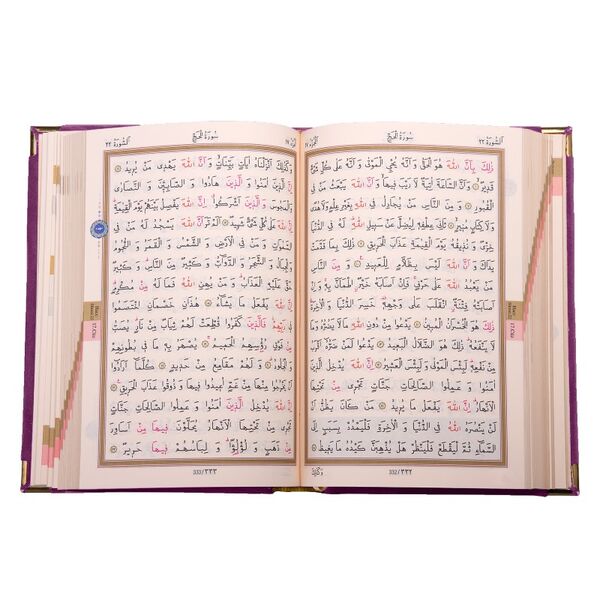 اَلسُّورَةُ ٢٢
سُورَةُ الْحَجِّ
ذٰلِكَ بِاَنَّ اللّٰهَ هُوَ الْحَقُّ وَ اَنَّهُ يُحْيِى الْمَوْتٰى وَ اَنَّهُ عَلٰى كُلِّ شَىْءٍ
قَدِيرٌ وَ اَنَّ السَّاعَةَ اٰتِيَةٌ لَا رَيْبَ فِيهَا وَ اَنَّ اللّٰهَ يَبْعَثُ مَنْ فِى
الْقُبُورِ وَ مِنَ النَّاسِ مَنْ يُجَادِلُ فِى اللّٰهِ بِغَيْرِ عِلْمٍ وَ لَا هُدًى
وَ لَا كِتَابٍ مُنِيرٍ ثَانِىَ عِطْفِهِ لِيُضِلَّ عَنْ سَبِيلِ اللّٰهِ لَهُ فِى الدُّنْيَا
خِزْىٌ وَ نُذِيقُهُ يَوْمَ الْقِيٰمَةِ عَذَابَ الْحَرِيقِ ذٰلِكَ بِمَا قَدَّمَتْ
يَدَاكَ وَ اَنَّ اللّٰهَ لَيْسَ بِظَلَّامٍ لِلْعَبِيدِ وَ مِنَ النَّاسِ
مَنْ يَعْبُدُ اللّٰهَ عَلٰى حَرْفٍ فَاِنْ اَصَابَهُ خَيْرٌ اطْمَاَنَّ بِهِ وَ اِنْ
اَصَابَتْهُ فِتْنَةٌ انْقَلَبَ عَلٰى وَجْهِهِ خَسِرَ الدُّنْيَا وَ الْاٰخِرَةَ
ذٰلِكَ هُوَ الْخُسْرَانُ الْمُبِينُ يَدْعُوا مِنْ دُونِ اللّٰهِ مَا لَا يَضُرُّهُ وَ مَا
لَا يَنْفَعُهُ ذٰلِكَ هُوَ الضَّلَالُ الْبَعِيدُ يَدْعُوا لَمَنْ ضَرُّهُ اَقْرَبُ
مِنْ نَفْعِهِ لَبِئْسَ الْمَوْلٰى وَ لَبِئْسَ الْعَشِيرُ اِنَّ اللّٰهَ يُدْخِلُ الَّذِينَ
اٰمَنُوا وَ عَمِلُوا الصَّالِحَاتِ جَنَّاتٍ تَجْرِى مِنْ تَحْتِهَا
الْاَنْهَارُ اِنَّ اللّٰهَ يَفْعَلُ مَا يُرِيدُ مَنْ كَانَ يَظُنُّ اَنْ لَنْ
يَنْصُرَهُ اللّٰهُ فِى الدُّنْيَا وَ الْاٰخِرَةِ فَلْيَمْدُدْ بِسَبَبٍ اِلَى
السَّمَاءِ ثُمَّ لْيَقْطَعْ فَلْيَنْظُرْ هَلْ يُذْهِبَنَّ كَيْدُهُ مَا يَغِيظُ
332/٣٣٢
وَكَذٰلِكَ
سُورَةُ الْحَجِّ
اَلسُّورَةُ ٢٢
وَ كَذٰلِكَ اَنْزَلْنَاهُ اٰيَاتٍ بَيِّنَاتٍ وَ اَنَّ اللّٰهَ يَهْدِى مَنْ يُرِيدُ
اِنَّ الَّذِينَ اٰمَنُوا وَ الَّذِينَ هَادُوا وَ الصَّابِئِينَ وَ النَّصَارٰى
وَ الْمَجُوسَ وَ الَّذِينَ اَشْرَكُوا اِنَّ اللّٰهَ يَفْصِلُ بَيْنَهُمْ يَوْمَ الْقِيٰمَةِ
اِنَّ اللّٰهَ عَلٰى كُلِّ شَىْءٍ شَهِيدٌ اَلَمْ تَرَ اَنَّ اللّٰهَ يَسْجُدُ لَهُ مَنْ فِى
السَّمٰوَاتِ وَ مَنْ فِى الْاَرْضِ وَ الشَّمْسُ وَ الْقَمَرُ وَ النُّجُومُ
وَ الْجِبَالُ وَ الشَّجَرُ وَ الدَّوَابُّ وَ كَثِيرٌ مِنَ النَّاسِ وَ كَثِيرٌ
حَقَّ عَلَيْهِ الْعَذَابُ وَ مَنْ يُهِنِ اللّٰهُ فَمَا لَهُ مِنْ مُكْرِمٍ
اِنَّ اللّٰهَ يَفْعَلُ مَا يَشَاءُ هٰذَانِ خَصْمَانِ اخْتَصَمُوا
فِى رَبِّهِمْ فَالَّذِينَ كَفَرُوا قُطِّعَتْ لَهُمْ ثِيَابٌ مِنْ نَارٍ يُصَبُّ
مِنْ فَوْقِ رُؤُسِهِمُ الْحَمِيمُ يُصْهَرُ بِهِ مَا فِى بُطُونِهِمْ
وَ الْجُلُودُ وَ لَهُمْ مَقَامِعُ مِنْ حَدِيدٍ كُلَّمَا اَرَادُوا
اَنْ يَخْرُجُوا مِنْهَا مِنْ غَمٍّ اُعِيدُوا فِيهَا وَ ذُوقُوا عَذَابَ الْحَرِيقِ
اِنَّ اللّٰهَ يُدْخِلُ الَّذِينَ اٰمَنُوا وَ عَمِلُوا الصَّالِحَاتِ جَنَّاتٍ
تَجْرِى مِنْ تَحْتِهَا الْاَنْهَارُ يُحَلَّوْنَ فِيهَا مِنْ اَسَاوِرَ
مِنْ ذَهَبٍ وَ لُؤْلُؤًا وَ لِبَاسُهُمْ فِيهَا حَرِيرٌ
333/٣٣٣